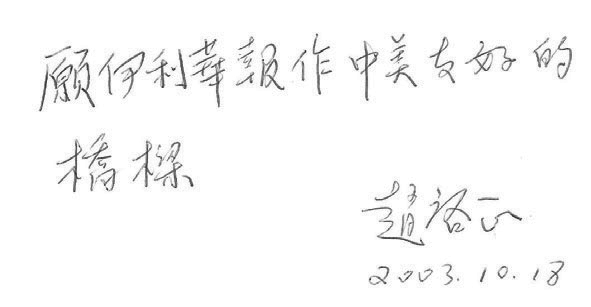 願伊利華報作中美友好的
橋樑
趙啟正
2003.10.18